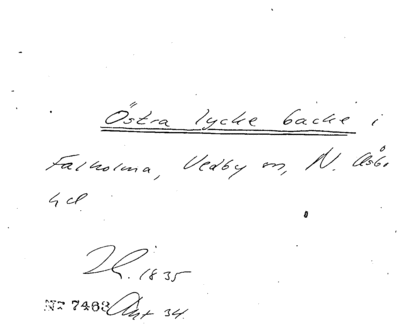 Östra lycke backe i
Falholma, Vedby sn, N. Åsbo
hd
Lh. 1835
Nr 7463 Akt 34.